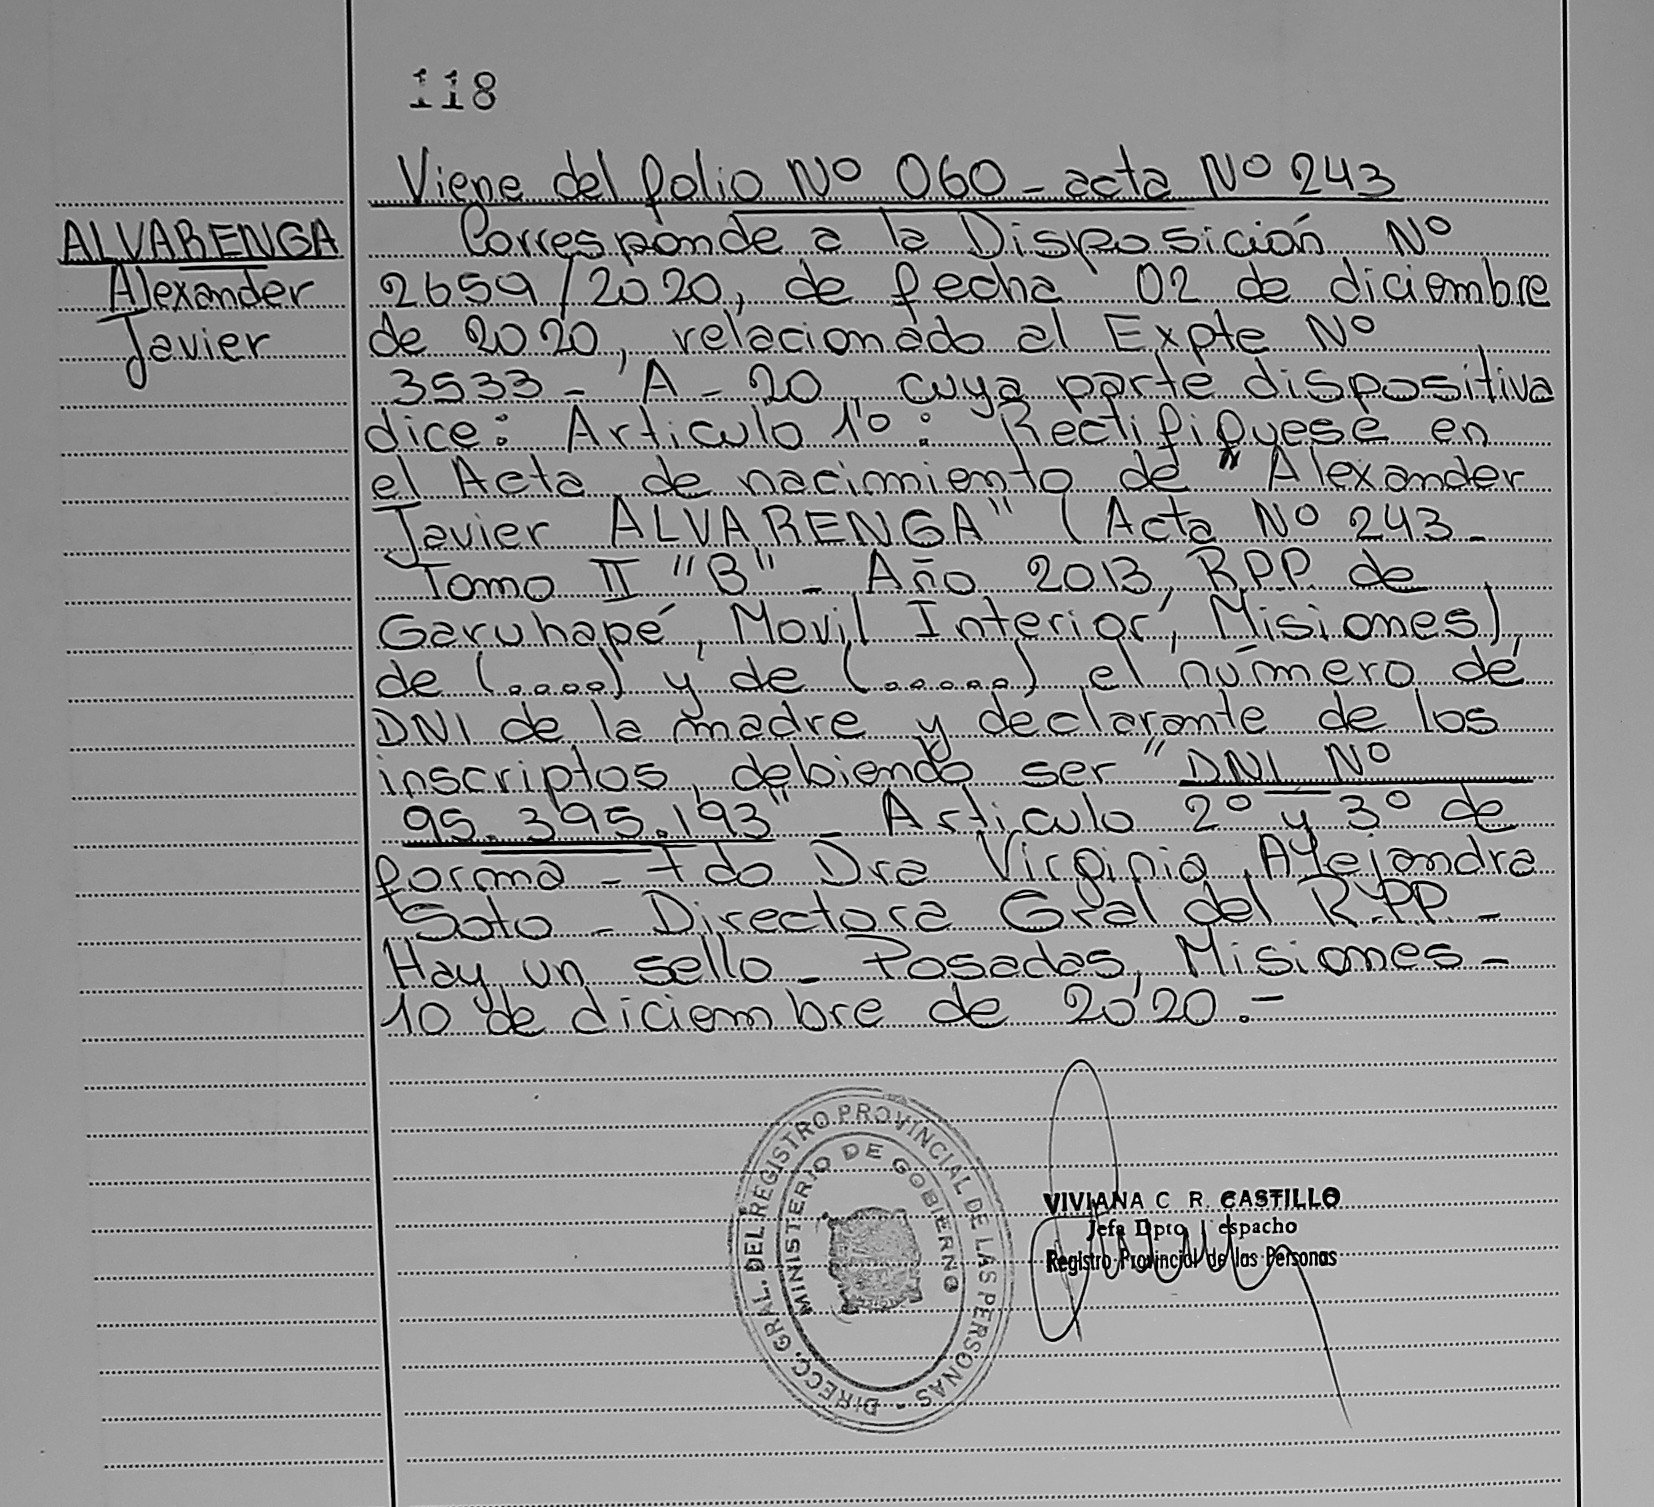 118
Viene del folio Nº 060 - acta Nº 243
ALVARENGA
Alexander
Javier
Corresponde a la Disposición Nº
2659/2020, de fecha 02 de diciembre
de 2020, relacionado al Expte Nº
3533 - A - 20, cuya parte dispositiva
dice: Articulo 1º: Rectifiquese en
el Acta de nacimiento de "Alexander
Javier ALVARENGA" (Acta Nº 243 -
Tomo II "B" - Año 2013, RPP. de
Garuhapé, Movil Interior, Misiones),
de (.....) y de (......) el número de
DNI de la madre y declarante de los
inscriptos, debiendo ser "DNI Nº
95.395.193" - Articulo 2º y 3º de
forma - Fdo Dra Virginia Alejandra
Soto - Directora Gral del R.PP -
Hay un sello - Posadas, Misiones -
10 de diciembre de 2020.-
DIRECC. GRAL. DEL REGISTRO PROVINCIAL DE LAS PERSONAS -
MINISTERIO DE GOBIERNO
VIVIANA C R. CASTILLO
Jefa Dpto espacho
Registro Provincial de las Personas